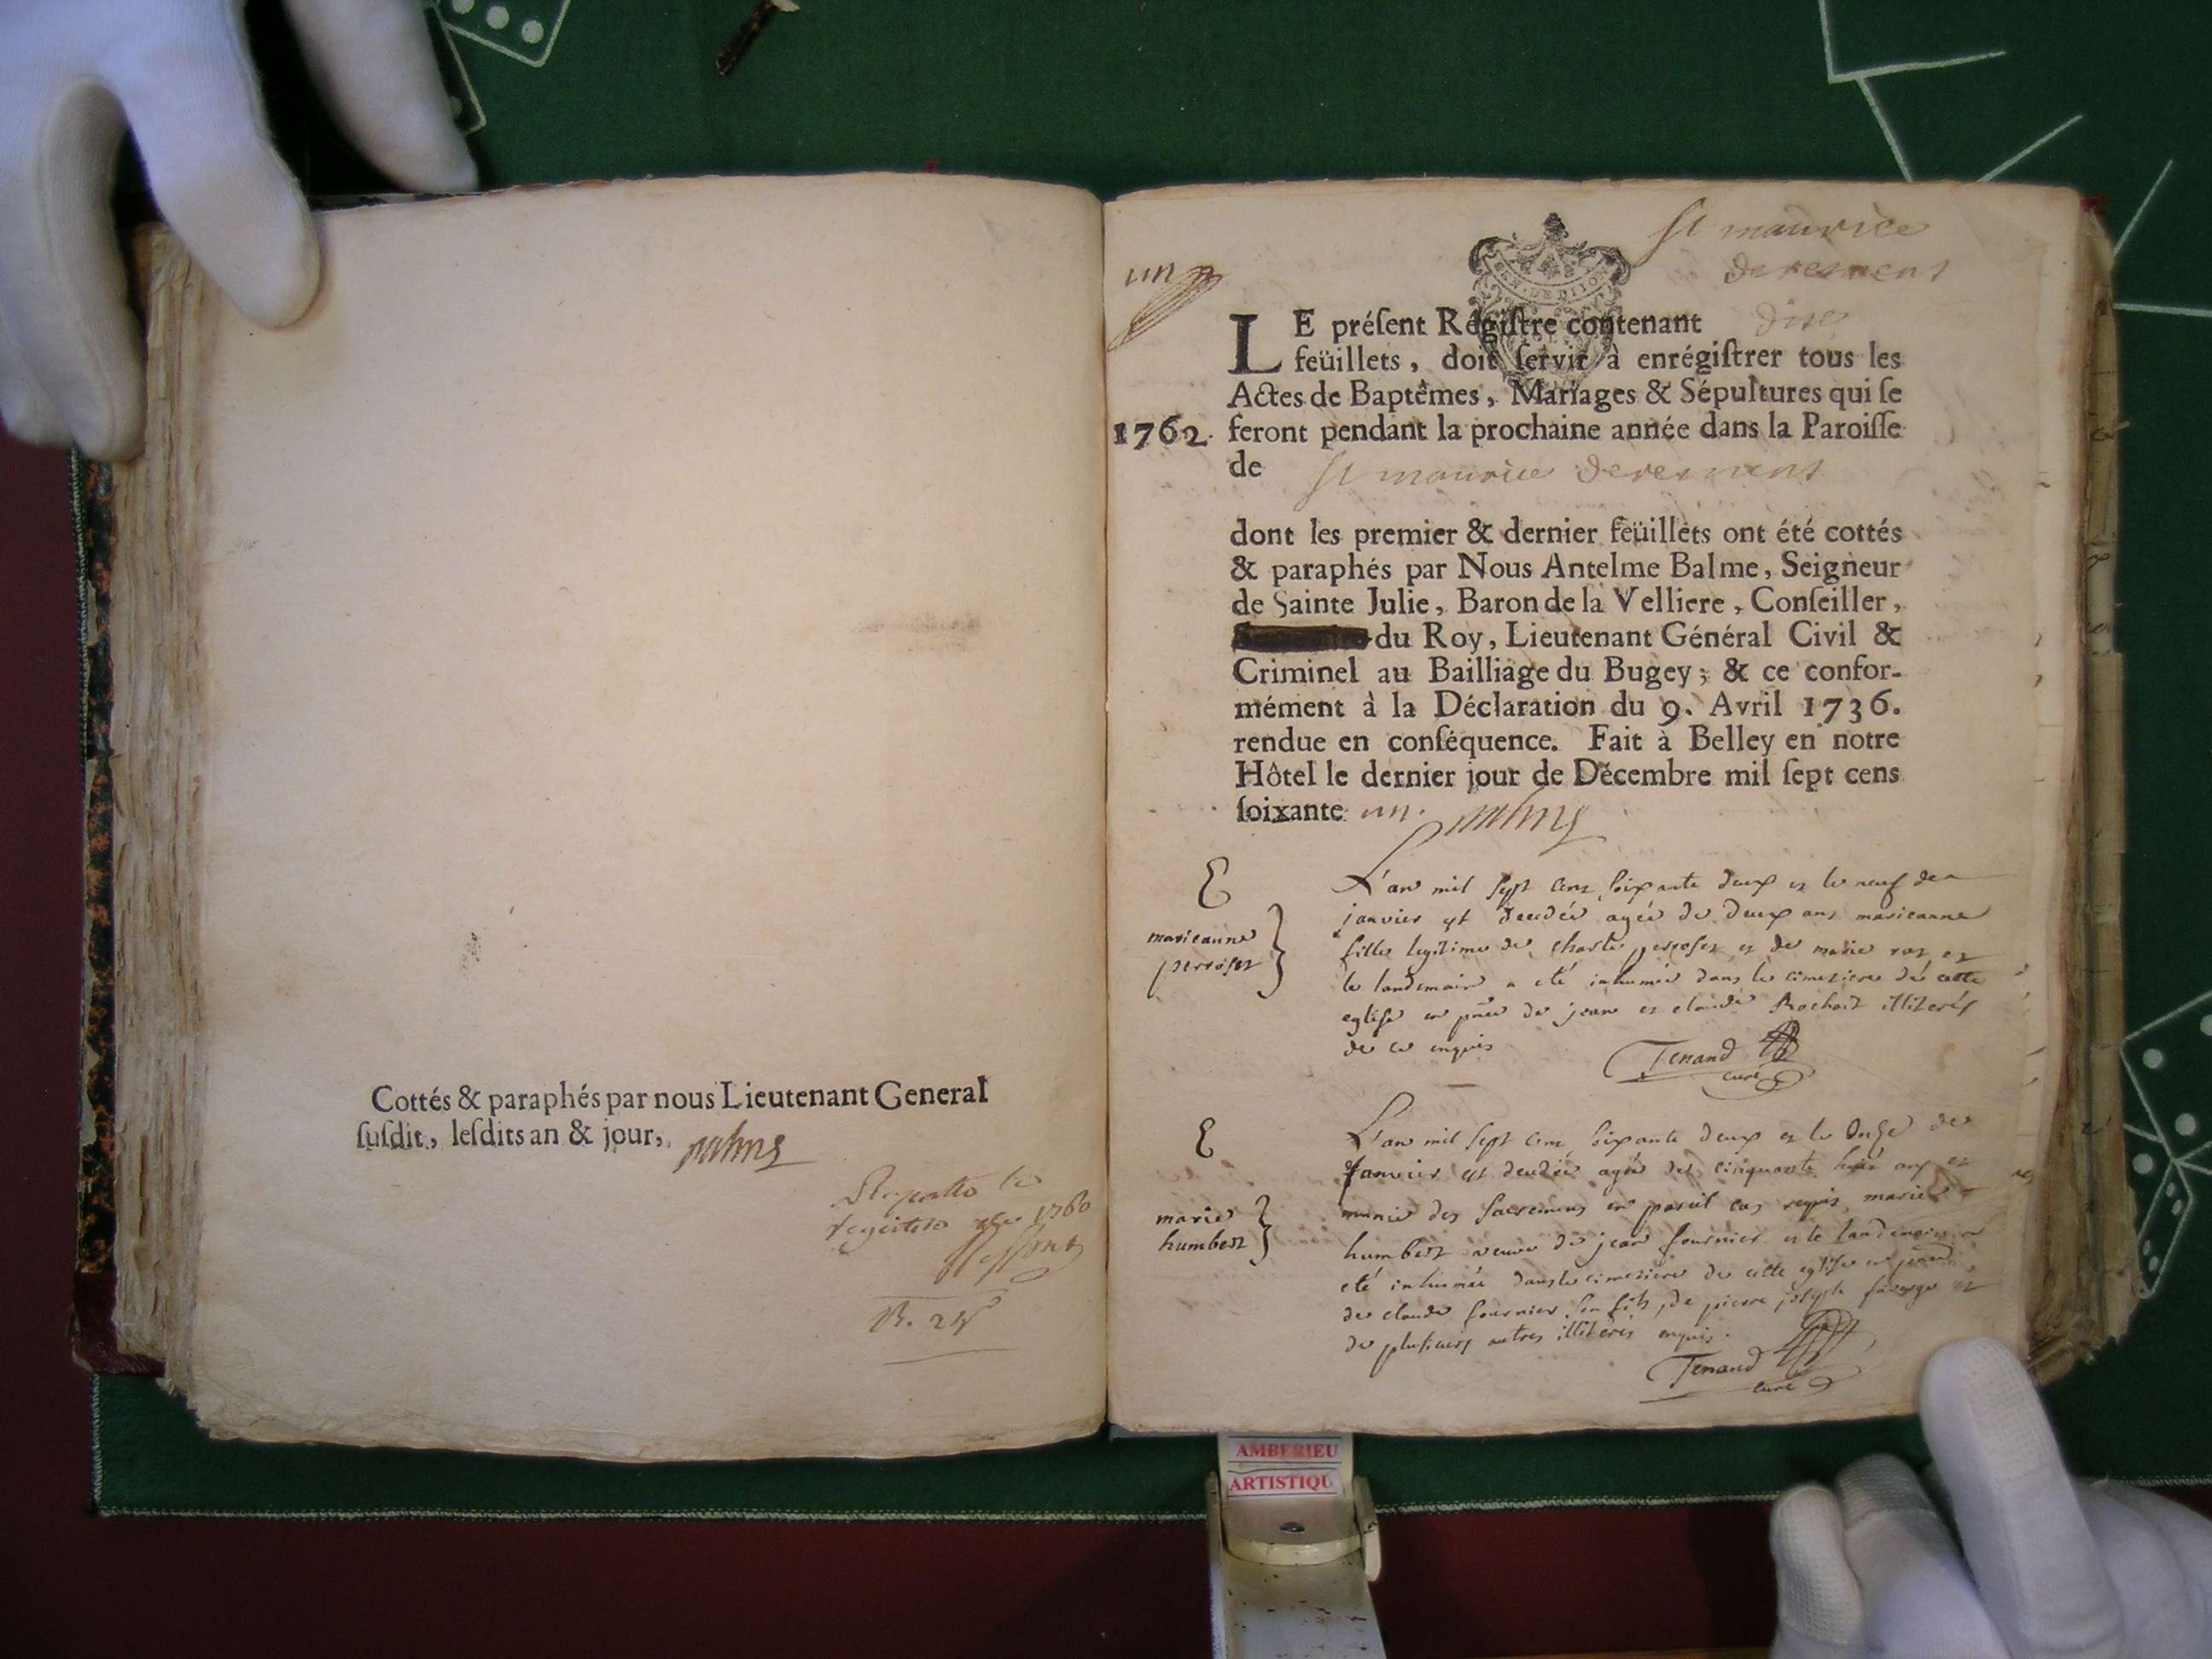 Cottés & paraphés par nous Lieutenant General
ſuſdit, leſdits an & jour,
1760
R. 24
St maurice
deremens
un
GEN. DE DIJON
LE préſent Régiſtre contenant dix
feüillets, doit ſervir à enrégiſtrer tous les
Actes de Baptêmes, Mariages & Sépultures qui ſe
1762. feront pendant la prochaine année dans la Paroiſſe
de St maurice deremens
dont les premier & dernier feüillets ont été cottés
& paraphés par Nous Antelme Balme, Seigneur
de Sainte Julie, Baron de la Velliere, Conſeiller,
du Roy, Lieutenant Général Civil &
Criminel au Bailliage du Bugey; & ce confor-
mément à la Déclaration du 9. Avril 1736.
rendue en conſéquence. Fait à Belley en notre
Hôtel le dernier jour de Décembre mil ſept cens
ſoixante un.
L'an mil sept cens soixante deux et le neuf de
janvier est decedée agée de deux ans marieanne
marieanne
perroset
fille legitime de charle perroset et de marie rat et
le landemain a eté inhumée dans le cimetiere de cette
eglise en pnce de jean et claude Rochait illiterés
de ce enquis
Tenand
curé
L'an mil sept cens soixante deux et le Onze de
Janvier est decedée agée de cinquante huit ans et
munie des sacremens en pareil cas requis marie
marie
humbert
humbert veuve de jean fournier et le landemain a
eté inhumée dans le cimetiere de cette eglise en
de claude fournier son fils, de pierre joseph et
de plusieurs autres illiterés enquis.
Tenand
curé
AMBERIEU
ARTISTIQU